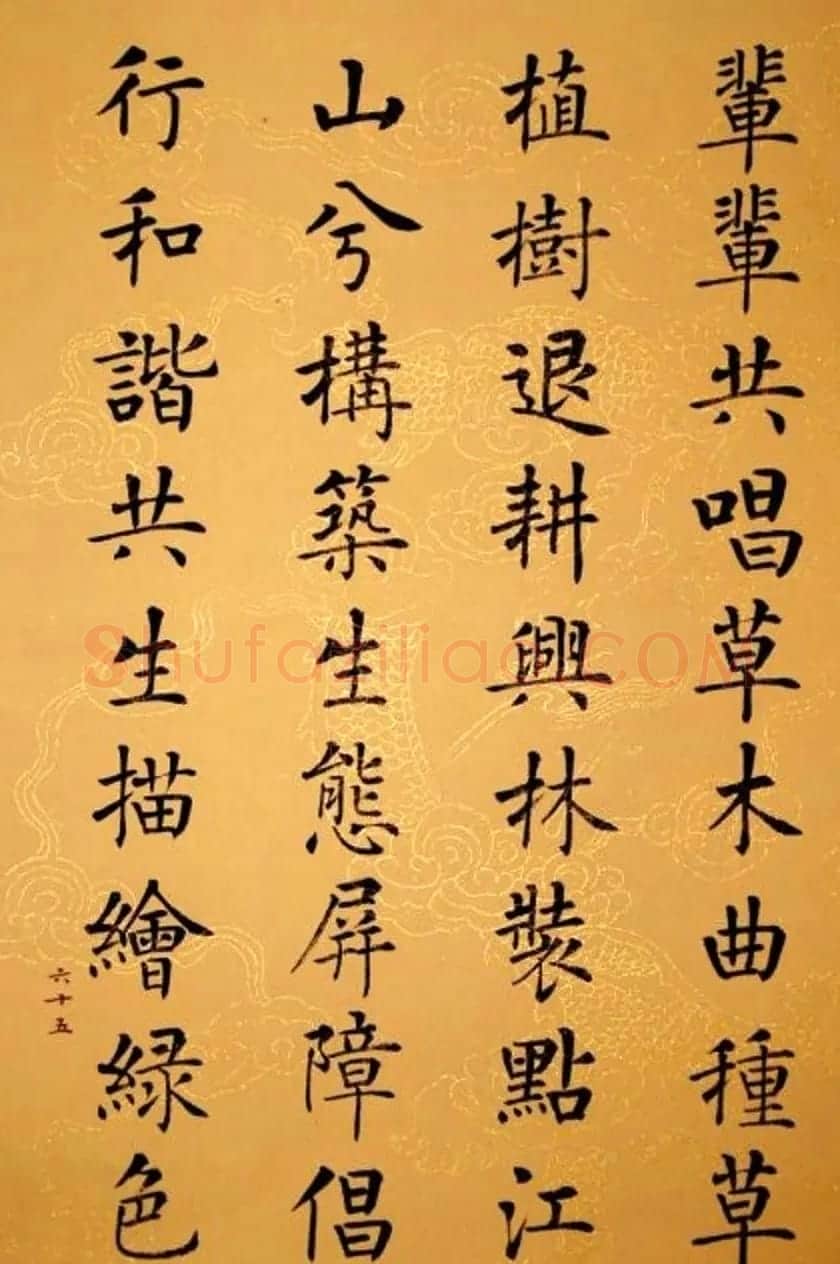 輩輩共唱草木曲種草
植樹退耕興林裝點江
山兮構築生態屏障倡
行和諧共生描繪緑色
六十五